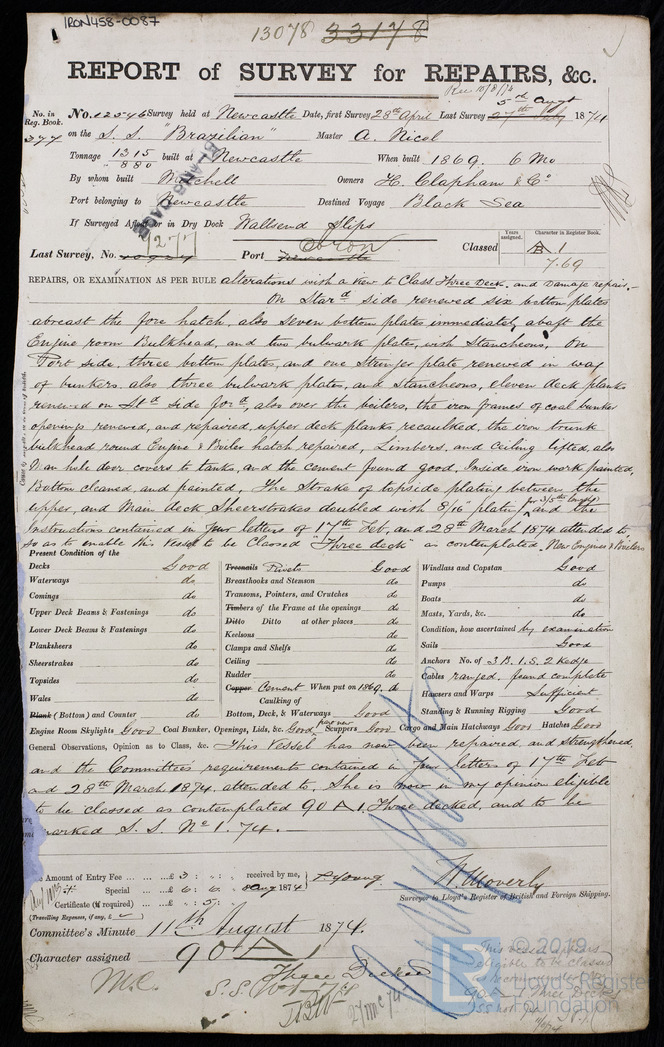 IRON458-0087
13078 33178
REPORT of SURVEY for REPAIRS, &c.
Rec 10/8/74
5th Augt
No. in Reg. Book.
377
No. 12546 Survey held at Newcastle Date, first Survey 28th April Last Survey 27th July 1874
on the S. S. "Brazilian" Master A. Nicol
Tonnage 1315 / 880 built at Newcastle When built 1869. 6 Mo
By whom built Mitchell Owners H. Clapham & Co
Port belonging to Newcastle Destined Voyage Black Sea
If Surveyed Afloat or in Dry Dock Wallsend Slips
Last Survey, No. Port Newcastle Classed
Years assigned. Character in Register Book.
A 1
7.69
REPAIRS, OR EXAMINATION AS PER RULE alterations with a view to Class Three Deck, and Damage repairs.
On Stard side renewed six bottom plates
abreast the fore hatch, also seven bottom plates immediately abaft the
Engine room Bulkhead, and two bulwark plates, with Stancheons, On
Port side, three bottom plates, and one Stringer plate renewed in way
of bunkers, also three bulwark plates, and Stancheons, eleven deck planks
renewed on Std side ford, also over the boilers, the iron frames of coal bunker
openings renewed, and repaired, upper deck planks recaulked, the iron trunk
bulkhead round Engine & Boiler hatch repaired, Limbers, and Ceiling lifted, also
Man hole door covers to tanks, and the cement found good, Inside iron work painted,
Bottom cleaned, and painted, The Strake of topside plating between the
upper, and Main deck Sheerstrakes doubled with 8/16" plating for 3/5th length and the
instructions contained in your letters of 17th Feb, and 28th March 1874 attended to
so as to enable this Vessel to be Classed "Three deck" as contemplated. New Engines & Boilers
Present Condition of the
Decks Good
Waterways do
Comings do
Upper Deck Beams & Fastenings do
Lower Deck Beams & Fastenings do
Planksheers do
Sheerstrakes do
Topsides do
Wales do
Plank (Bottom) and Counter do
Treenails Rivets Good
Breasthooks and Stemson do
Transoms, Pointers, and Crutches do
Timbers of the Frame at the openings do
Ditto Ditto at other places do
Keelsons do
Clamps and Shelfs do
Ceiling do
Rudder do
Copper Cement When put on 1869. do
Caulking of
Bottom, Deck, & Waterways Good
Windlass and Capstan Good
Pumps do
Boats do
Masts, Yards, &c. do
Condition, how ascertained by examination
Sails Good
Anchors No. of 3 B. 1. S. 2 Kedge
Cables ranged, found complete
Hawsers and Warps Sufficient
Standing & Running Rigging Good
Engine Room Skylights Good Coal Bunker, Openings, Lids, &c. Good Scuppers Good Cargo and Main Hatchways Good Hatches Good
General Observations, Opinion as to Class, &c. This Vessel has now been repaired, and strengthened,
and the Committees requirements contained in your letters of 17th Feb
and 28th March 1874, attended to. She is now in my opinion eligible
to be classed as contemplated 90 A 1. Three decked, and to be
marked S. S. No 1. 74.
Amount of Entry Fee £3 : " : " received by me,
Special £6 : 6. 8 Aug 1874 P. Young
Certificate (if required) : 5 :
(Travelling Expenses, if any, £ )
W. Moverly
Surveyor to Lloyd's Register of British and Foreign Shipping.
Committee's Minute 11th August 1874.
Character assigned 90 A 1
Three Decked
M.C.
This vessel appears
eligible to be classed
90 A 1 Three Decks
© 2019
LR
Lloyd's Register
Foundation